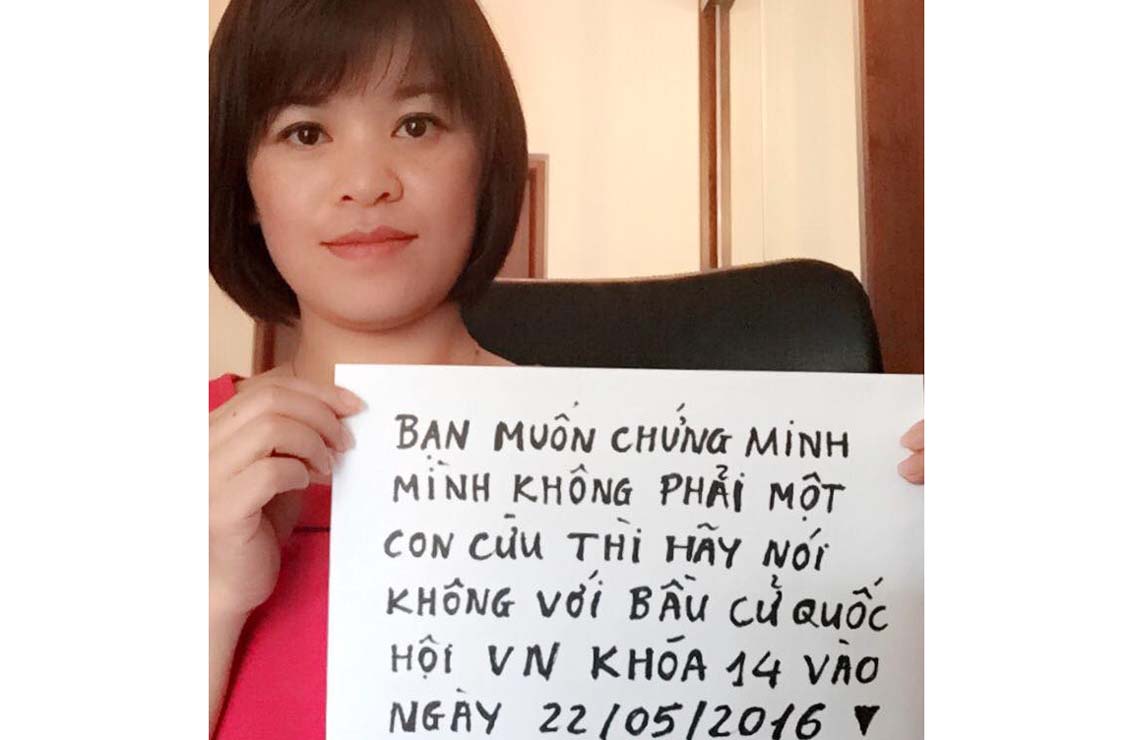 BẠN MUỐN CHỨNG MINH
MÌNH KHÔNG PHẢI MỘT
CON CỪU THÌ HÃY NÓI
KHÔNG VỚI BẦU CỬ QUỐC
HỘI VN KHÓA 14 VÀO
NGÀY 22/05/2016 ▼